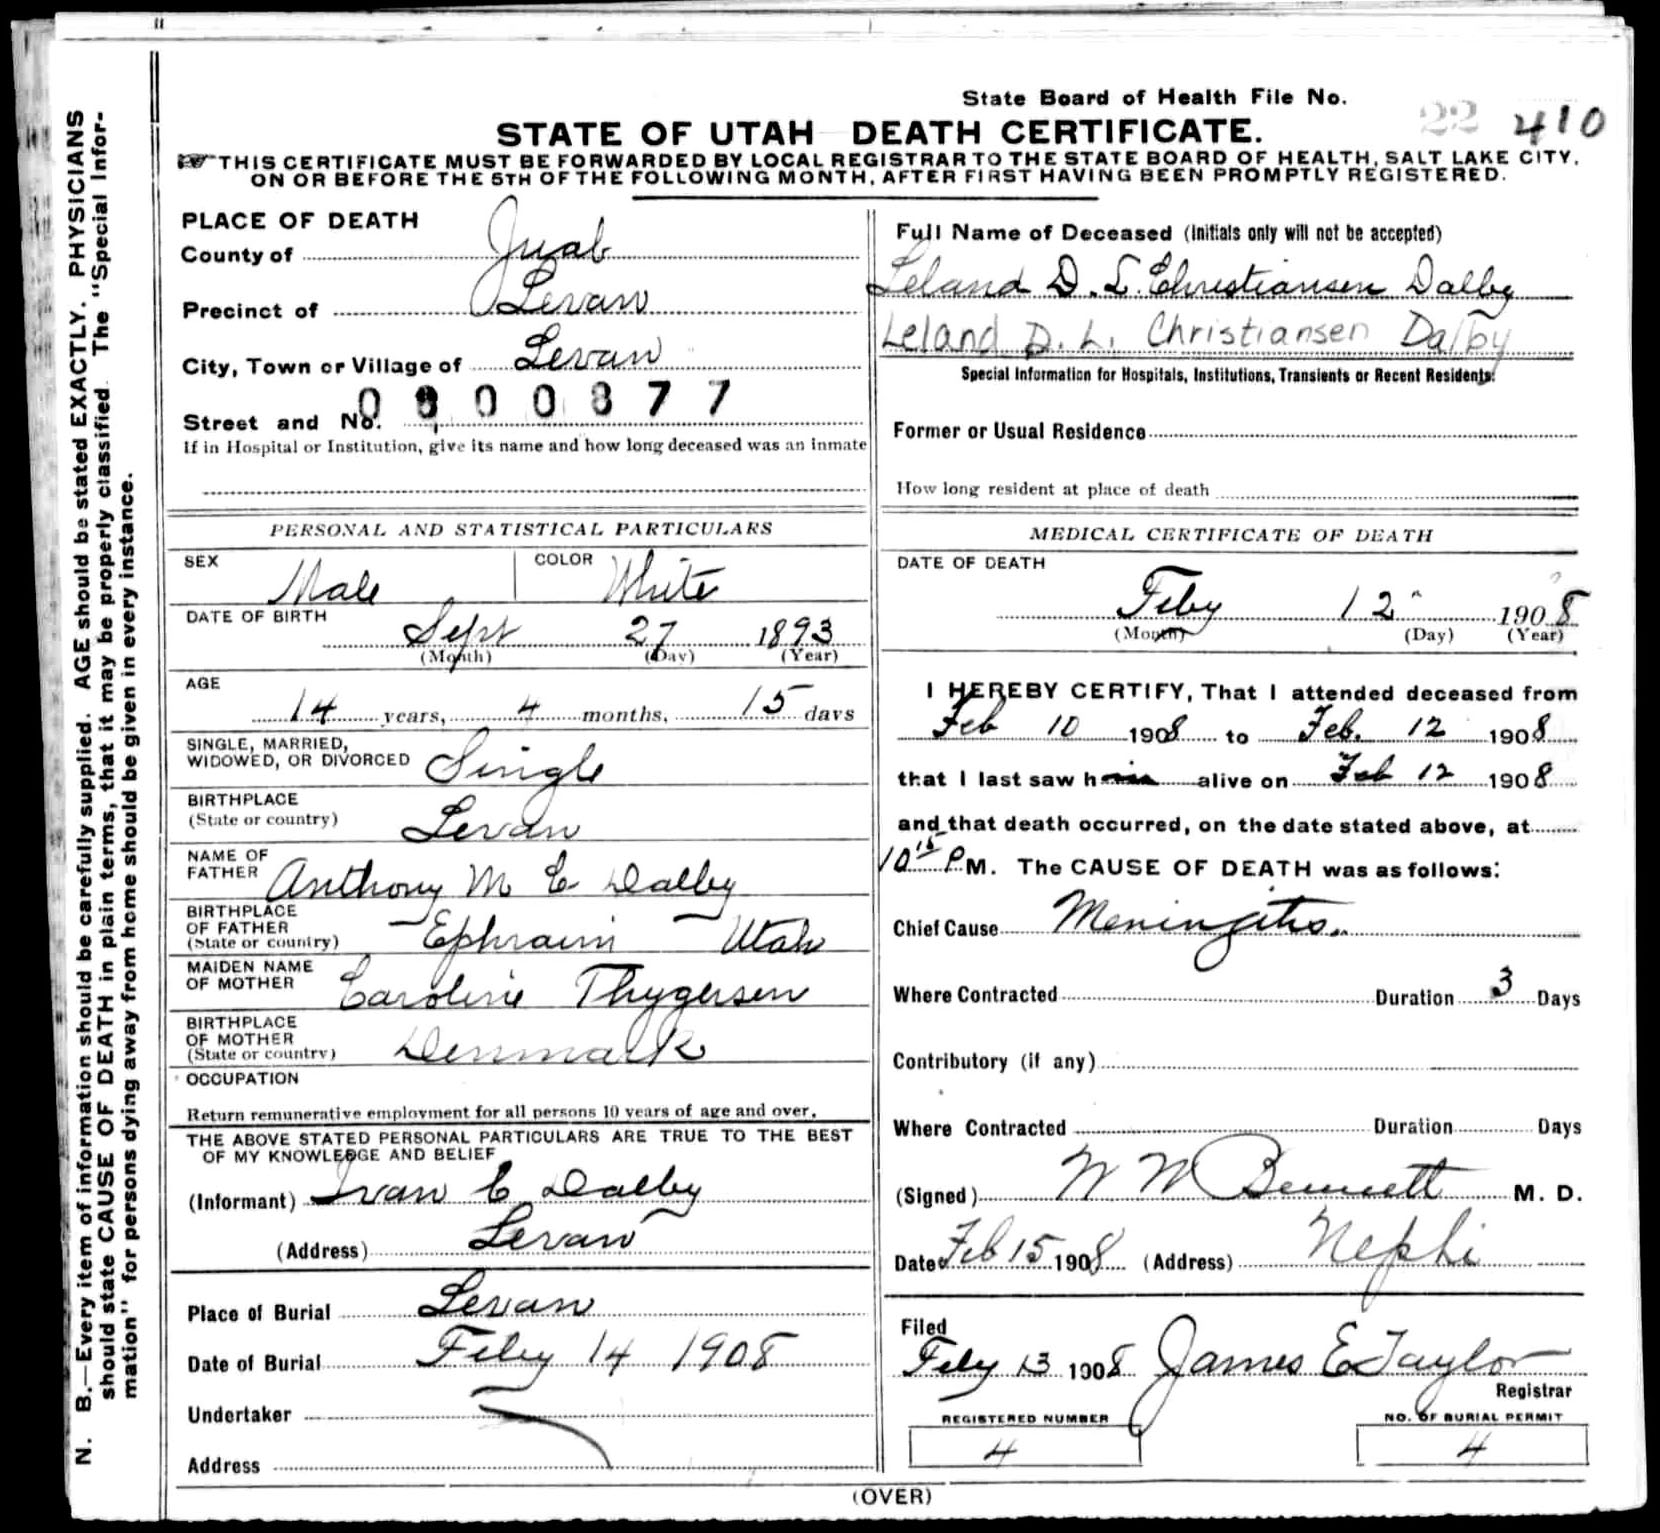 State Board of Health File No. 22 410
STATE OF UTAH DEATH CERTIFICATE.
THIS CERTIFICATE MUST BE FORWARDED BY LOCAL REGISTRAR TO THE STATE BOARD OF HEALTH, SALT LAKE CITY,
ON OR BEFORE THE 5TH OF THE FOLLOWING MONTH, AFTER FIRST HAVING BEEN PROMPTLY REGISTERED.
N. B.—Every item of information should be carefully supplied. AGE should be stated EXACTLY. PHYSICIANS
should state CAUSE OF DEATH in plain terms, that it may be properly classified. The "Special Infor-
mation" for persons dying away from home should be given in every instance.
PLACE OF DEATH
County of Juab
Precinct of Levan
City, Town or Village of Levan
Street and No. 0800877
If in Hospital or Institution, give its name and how long deceased was an inmate
PERSONAL AND STATISTICAL PARTICULARS
SEX Male COLOR White
DATE OF BIRTH Sept 27 1893
(Month) (Day) (Year)
AGE
14 years, 4 months, 15 days
SINGLE, MARRIED,
WIDOWED, OR DIVORCED Single
BIRTHPLACE
(State or country) Levan
NAME OF
FATHER Anthony M C Dalby
BIRTHPLACE
OF FATHER
(State or country) Ephraim Utah
MAIDEN NAME
OF MOTHER Caroline Thygersen
BIRTHPLACE
OF MOTHER
(State or country) Denmark
OCCUPATION
Return remunerative employment for all persons 10 years of age and over.
THE ABOVE STATED PERSONAL PARTICULARS ARE TRUE TO THE BEST
OF MY KNOWLEDGE AND BELIEF
(Informant) Ivan C Dalby
(Address) Levan
Place of Burial Levan
Date of Burial Feby 14 1908
Undertaker
Address
Full Name of Deceased (Initials only will not be accepted)
Leland D. L. Christiansen Dalby
Leland D. L. Christiansen Dalby
Special Information for Hospitals, Institutions, Transients or Recent Residents.
Former or Usual Residence
How long resident at place of death
MEDICAL CERTIFICATE OF DEATH
DATE OF DEATH
Feby 12" 1908
(Month) (Day) (Year)
I HEREBY CERTIFY, That I attended deceased from
Feb 10 1908 to Feb. 12 1908
that I last saw him alive on Feb 12 1908
and that death occurred, on the date stated above, at
10 15 P M. The CAUSE OF DEATH was as follows:
Chief Cause Meningitis.
Where Contracted Duration 3 Days
Contributory (if any)
Where Contracted Duration Days
(Signed) W W Bennett M. D.
Date Feb 15 1908 (Address) Nephi
Filed
Feby 13 1908 James E Taylor
Registrar
REGISTERED NUMBER NO. OF BURIAL PERMIT
4 4
(OVER)